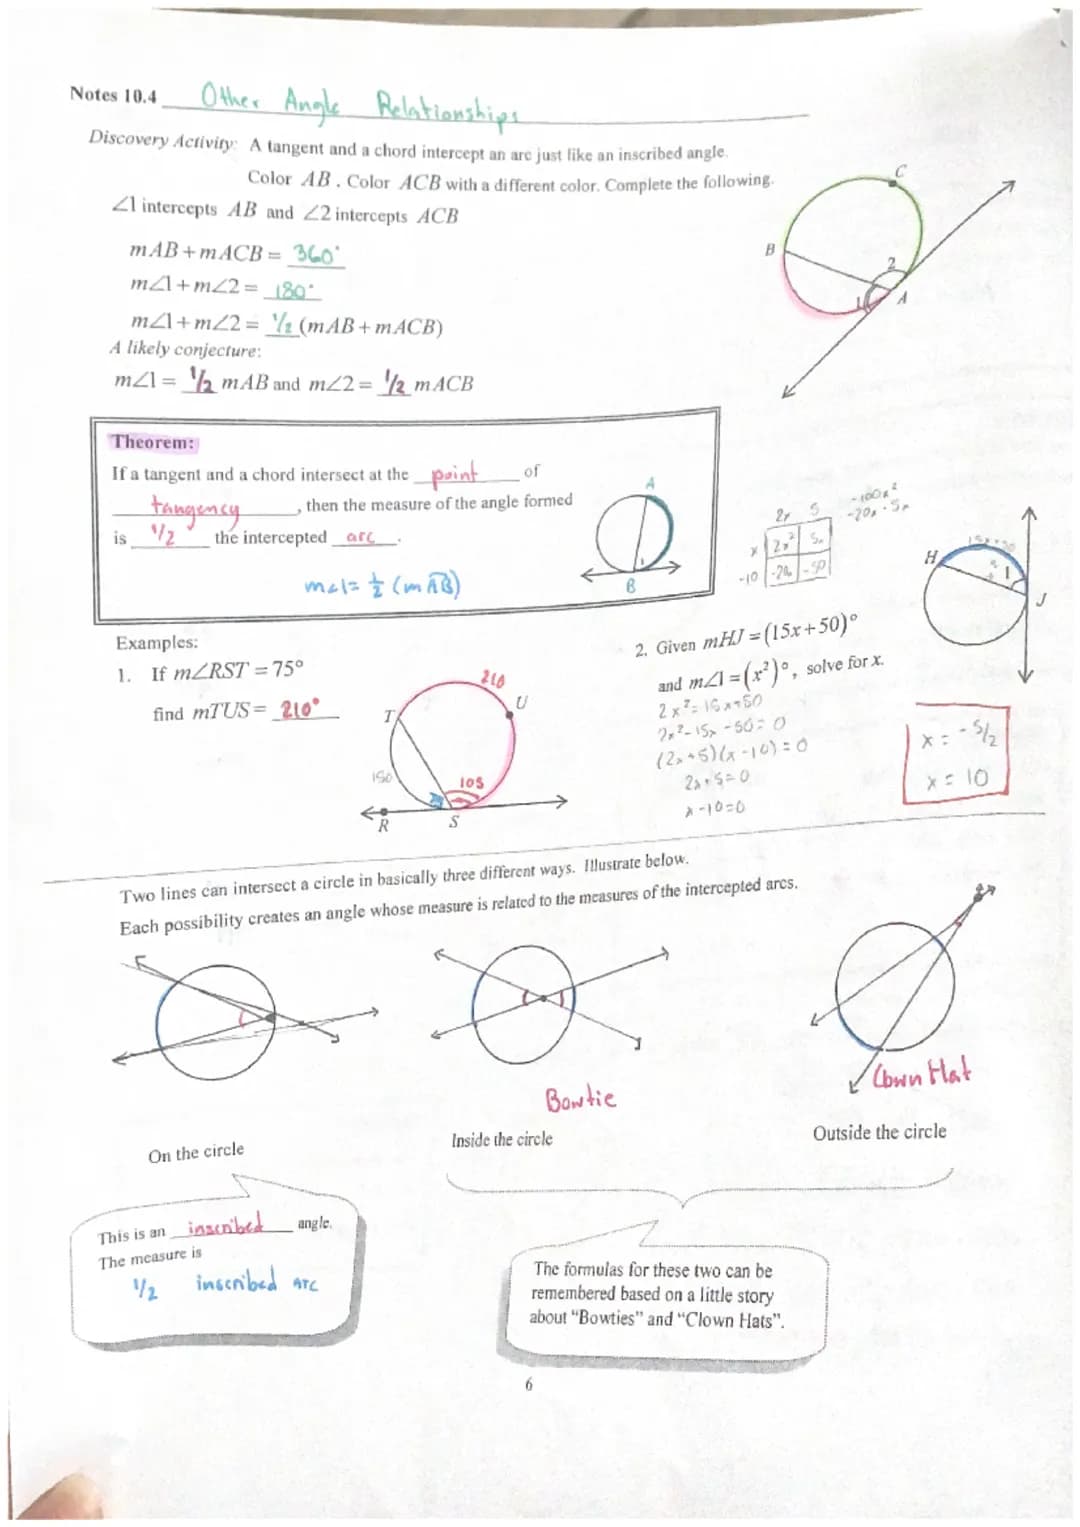 Notes 10.4 Other Angle Relationships
Discovery Activity: A tangent and a chord intercept an arc just like an inscribed angle.
Color AB. Color ACB with a different color. Complete the following.
∠1 intercepts AB and ∠2 intercepts ACB
mAB + mACB = 360°
m∠1 + m∠2 = 180°
m∠1 + m∠2 = 1/2 (mAB + mACB)
A likely conjecture:
m∠1 = 1/2 mAB and m∠2 = 1/2 mACB
C
B
2
1
A
Theorem:
If a tangent and a chord intersect at the point of
tangency, then the measure of the angle formed
is 1/2 the intercepted arc.
m∠1 = 1/2 (m AB)
A
1
B
2x 5
x 2x² 5x
-10 -20x -50
-100x²
-20x · 5x
H
15x+50
1
J
Examples:
1. If m∠RST = 75°
find mTUS = 210°
210
U
T
150
105
R
S
2. Given mHJ = (15x+50)°
and m∠1 = (x²)°, solve for x.
2x² = 15x+50
2x² - 15x - 50 = 0
(2x+5)(x-10) = 0
2x+5=0
x-10=0
x = -5/2
x = 10
Two lines can intersect a circle in basically three different ways. Illustrate below.
Each possibility creates an angle whose measure is related to the measures of the intercepted arcs.
Bowtie
Clown Hat
On the circle
Inside the circle
Outside the circle
This is an inscribed angle.
The measure is
1/2 inscribed arc
The formulas for these two can be
remembered based on a little story
about "Bowties" and "Clown Hats".
6